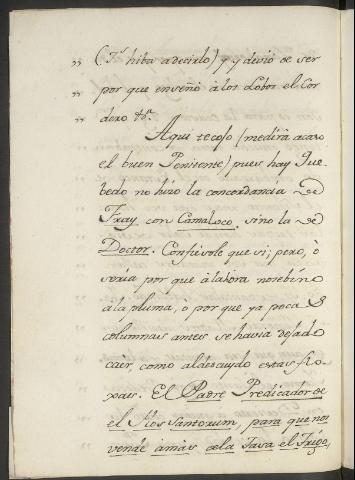 „ (Fr. hiba adecirlo) y y devió de ser
„ por que enseñò à los Lobos el Cor
„ dero &a.
Aqui tecoso (me dirà acaso
el buen Penitente) pues hay Que=
bedo no hizo la concordancia De
Fray con Camaloco. sino la De
Doctor. Confiésole que si; pero, ò
seria por que àlahora nosebino
àla pluma, ò por que ya poca S
columnas antes se havia dejado
caèr, como aldescuydo estas flo
xas. El Padre Predicador de
el Flos Santorum, para que nos
vende àmàs dela Tasa el Trigo,